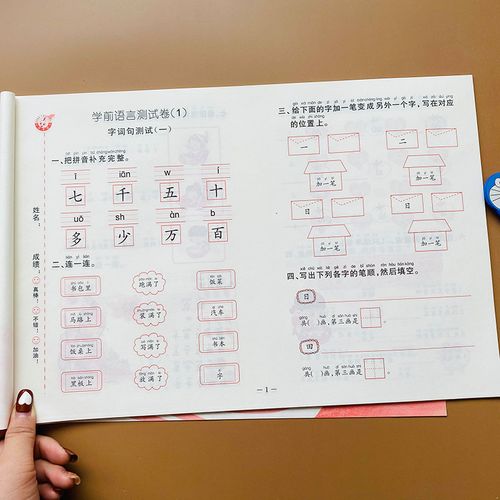 学前语言测试卷(1)
字词句测试(一)
姓名：
成绩：
真棒！
不错！
加油！
一、把拼音补充完整。
ī iān w í
七 千 五 十
uō sh àn b
多 少 万 百
二、连一连。
书包里 跑满了 饭菜
马路上 装满了 汽车
饭桌上 写满了 书本
黑板上 放满了 字
三、给下面的字加一笔变成另外一个字，写在对应
的位置上。
一 二
加一笔 加一笔
日 日
加一笔 加一笔
四、写出下列各字的笔顺，然后填空。
日
共( )画，第三画是
田
共( )画，第三画是
—1—